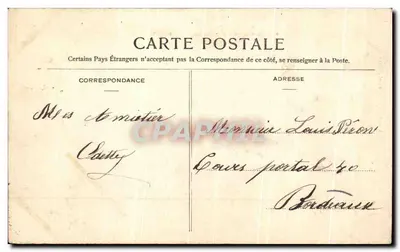 CARTE POSTALE
Certains Pays Étrangers n'acceptant pas la Correspondance de ce côté, se renseigner à la Poste.
CORRESPONDANCE
ADRESSE
Amitiés
Louis Péron
Cours portal 40
Bordeaux
CPARAMA